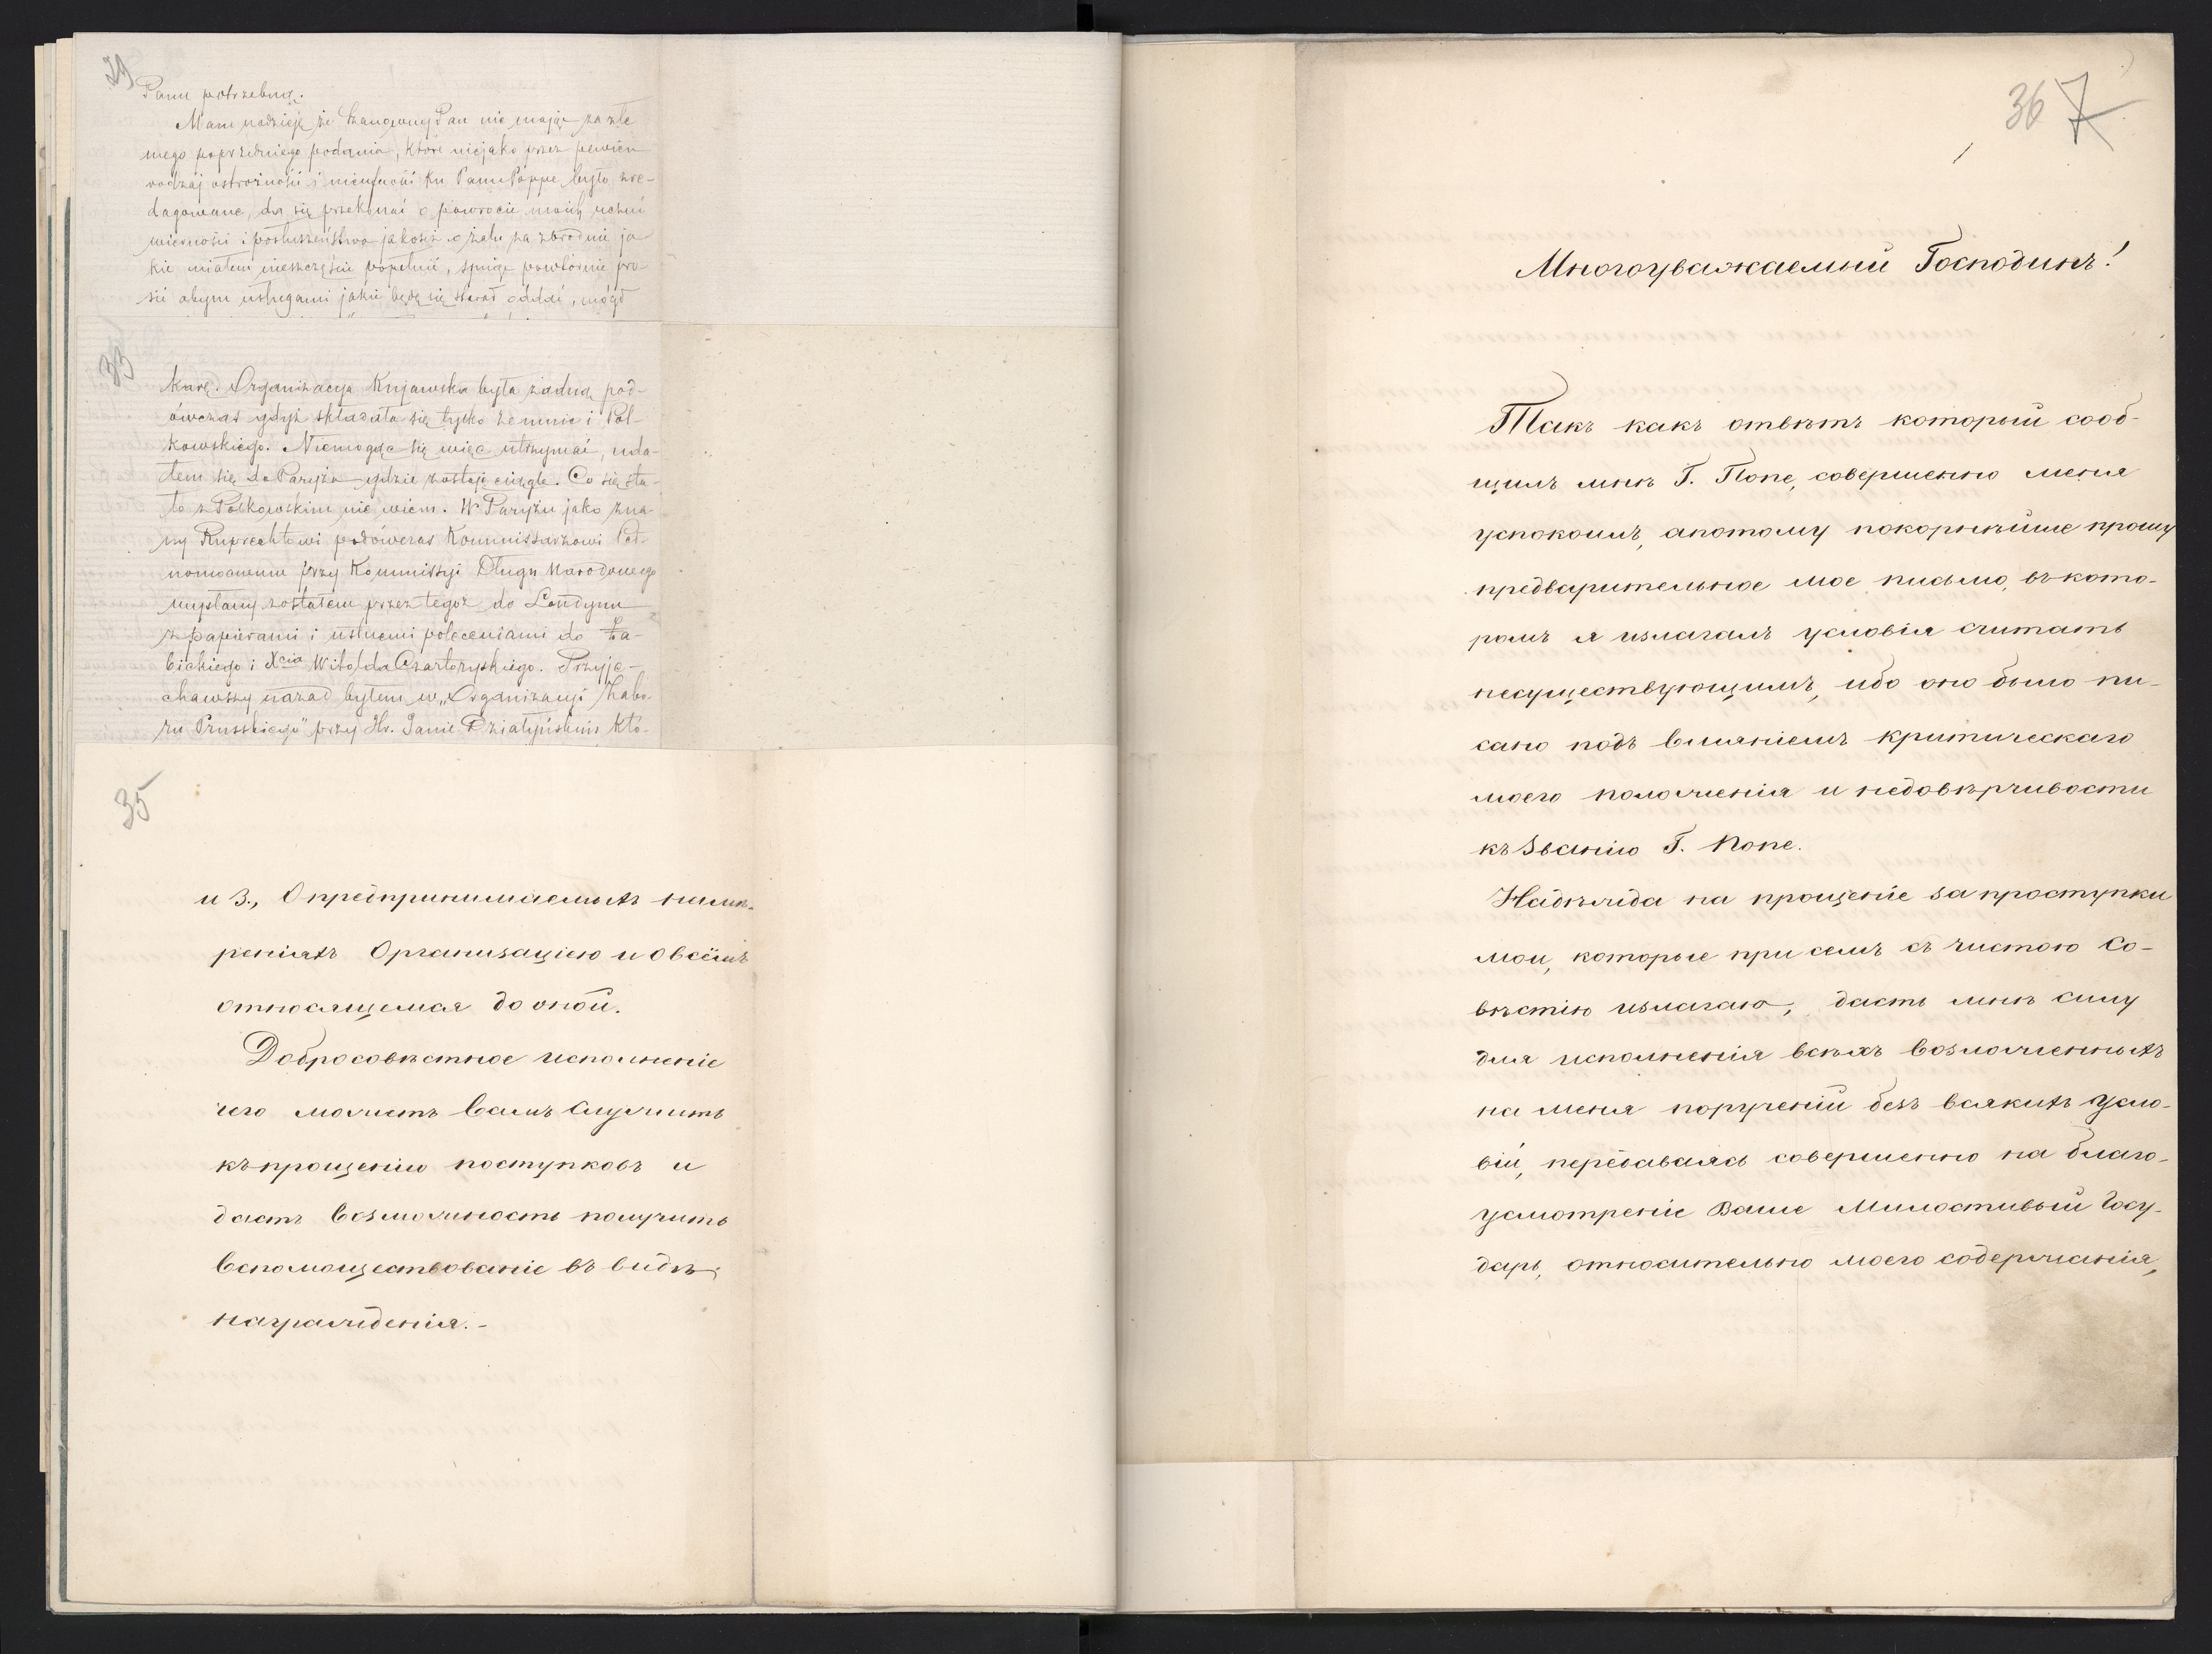 29
Panu potrzebną.
Mam nadzieję że Szanowny Pan nie mając za złe
mego poprzedniego podania, które niejako przez pewien
rodzaj ostrożności i nieufności ku Panu Poppe było zre-
dagowane, da się przekonać o powrocie moich uczuć
wierności i posłuszeństwa jakoteż o żalu za zbrodnie ja-
kie miałem nieszczęście popełnić, śpieszę powtórnie pro-
sić abym usługami jakie będę się starał oddać, mógł
33
karę. Organizacya Kujawska była żadną pod-
ówczas gdyż składała się tylko ze mnie i Pol-
kowskiego. Niemogąc się więc utrzymać, uda-
łem się do Paryża gdzie zostaję ciągle. Co się sta-
ło z Polkowskim nie wiem. W Paryżu jako zna-
ny Ruprechtowi podówczas Kommissarzowi Peł-
nomocnemu przy Kommissyi Długu Narodowego
wysłany zostałem przez tegoż do Londynu
z papierami i ustnemi poleceniami do Ża-
bickiego i Xcia Witolda Czartoryskiego. Przyje-
chawszy nazad byłem w „Organizacyi Zabo-
ru Pruskiego" przy Hr. Janie Działyńskim któ-
35
и 3., О предпринимаемыхъ намѣ-
реніяхъ Организаціею и о всёмъ
относящемся до оной.
Добросовѣстное исполненіе
чего можетъ Вамъ служить
къ прощенію поступковъ и
дастъ возможность получить
вспомоществованіе въ видѣ
награжденія.-
36 7
Многоуважаемый Господинъ!
Такъ какъ отвѣтъ который сооб-
щилъ мнѣ Г. Попе, совершенно меня
успокоилъ, апотому покорнѣйше прошу
предварительное мое письмо, въ кото-
ромъ я излагалъ условія считать
несуществующимъ, ибо оно было пи-
сано подъ вліяніемъ критическаго
моего положенія и недовѣрчивости
къ званію Г. Попе.
Надѣжда на прощеніе за проступки
мои, которые при семъ съ чистою со-
вѣстію излагаю, дасть мнѣ силу
для исполненія всѣхъ возложенныхъ
на меня порученій безъ всякихъ усло-
вій, передаваясь совершенно на благо-
усмотреніе Ваше Милостивый Госу-
дарь, относительно моего содержанія,